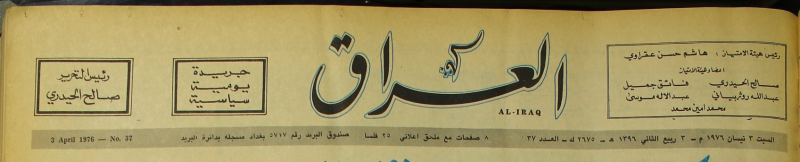 رئيس هيئة الامتياز : هاشم حسن عقراوي
اعضاء هيئة الامتياز
صالح الحيدري فائق جميل
عبدالله روژبياني عبدالاله موسى
محمد امين محمد
العراق
AL-IRAQ
جريدة
يومية
سياسية
رئيس التحرير
صالح الحيدري
السبت ٣ نيسان ١٩٧٦ م - ٣ ربيع الثاني ١٣٩٦ هـ - ٢٦٧٥ ك - العدد ٣٧
٨ صفحات مع ملحق اعلاني ٢٥ فلسا
صندوق البريد رقم ٥٧١٧ بغداد مسجله بدائرة البريد
3 April 1976 — No. 37